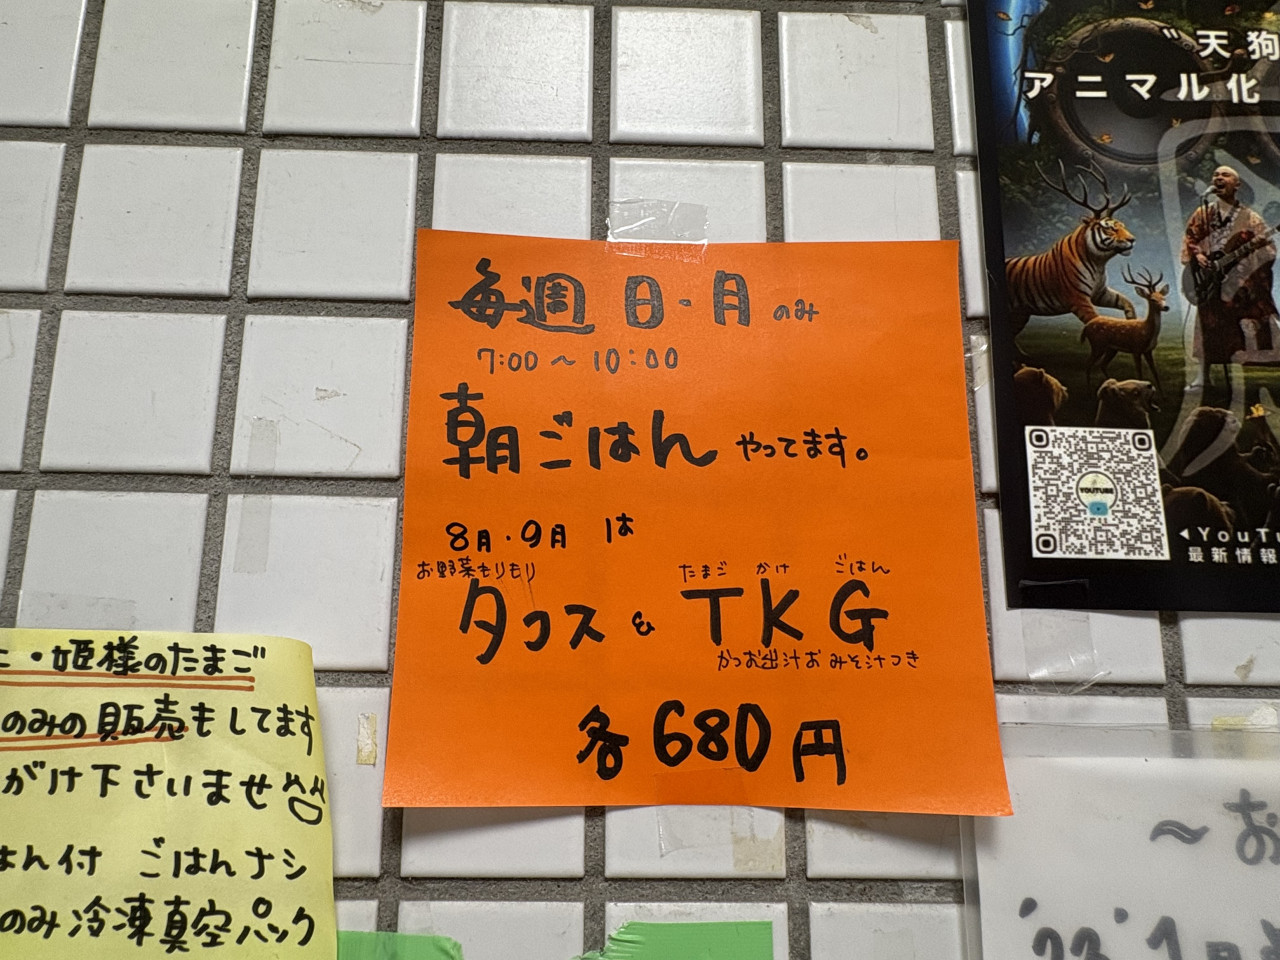 毎週 日・月のみ
7:00〜10:00
朝ごはん やってます。
8月・9月 は
お野菜もりもり たまご かけ ごはん
タコス & TKG
かつお出汁おみそ汁つき
各680円
・姫様のたまご
のみの販売もしてます
がけ下さいませ
はん付 ごはんナシ
のみ冷凍真空パック
"天狗
アニマル化
YOUTUBE
◀YouTu
最新情報
〜お